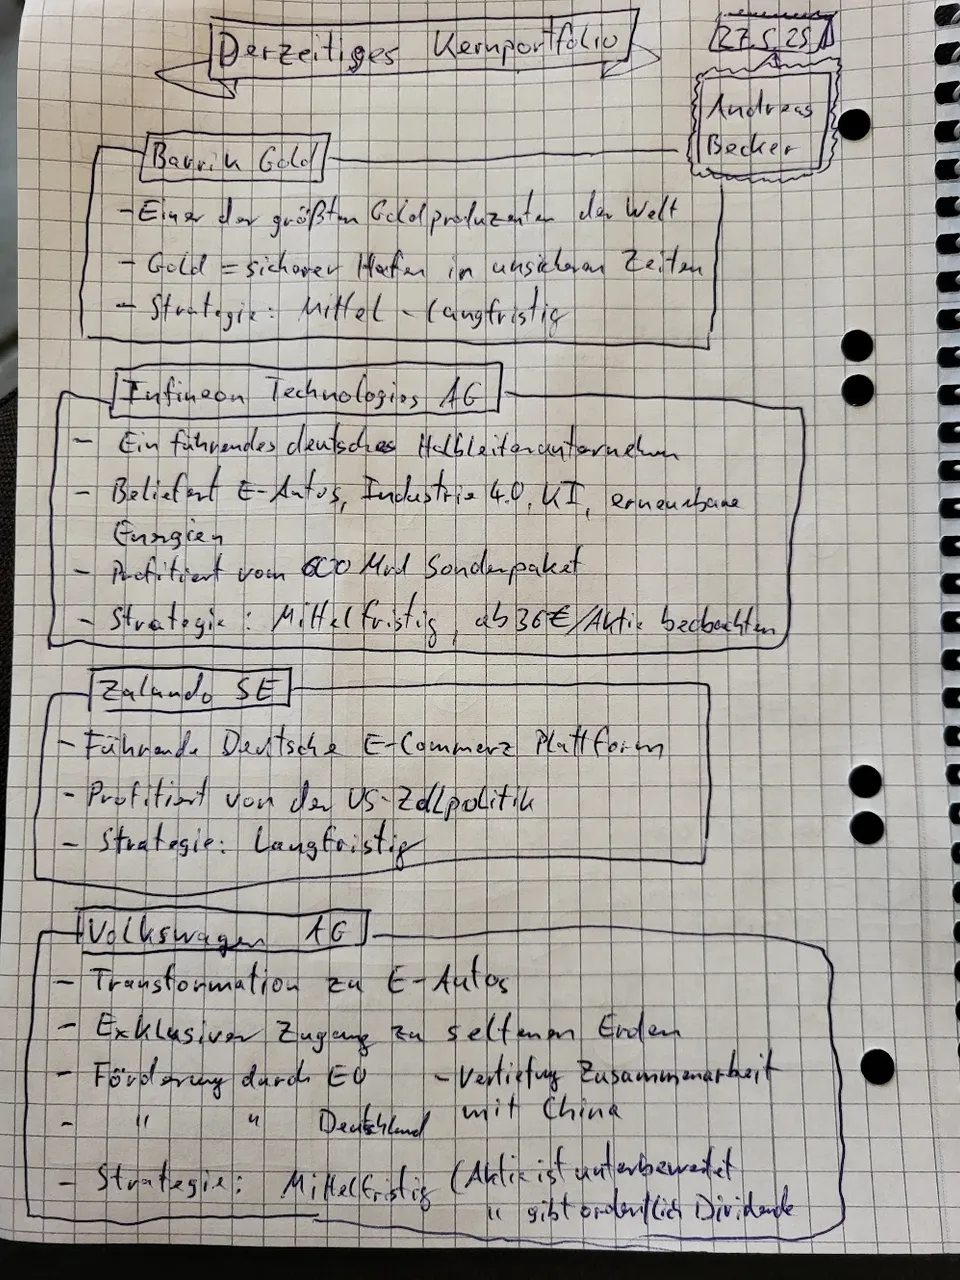 Derzeitiges Kernportfolio
27.5.25
Andreas
Becker
Barrik Gold
- Einer der größten Goldproduzenten der Welt
- Gold = sicherer Hafen in unsicheren Zeiten
- Strategie: Mittel - langfristig
Infineon Technologies AG
- Ein führendes deutsches Halbleiterunternehmen
- Beliefert E-Autos, Industrie 4.0, KI, erneuerbare
Energien
- Profitiert vom 600 Mrd Sonderpaket
- Strategie: Mittelfristig, ab 36€/Aktie beobachten
Zalando SE
- Führende Deutsche E-Commerz Plattform
- Profitiert von der US-Zollpolitik
- Strategie: Langfristig
Volkswagen AG
- Transformation zu E-Autos
- Exklusiver Zugang zu seltenen Erden
- Förderung durch EU - Vertiefung Zusammenarbeit
mit China
- " " Deutschland
- Strategie: Mittelfristig (Aktie ist unterbewertet
" gibt ordentlich Dividende